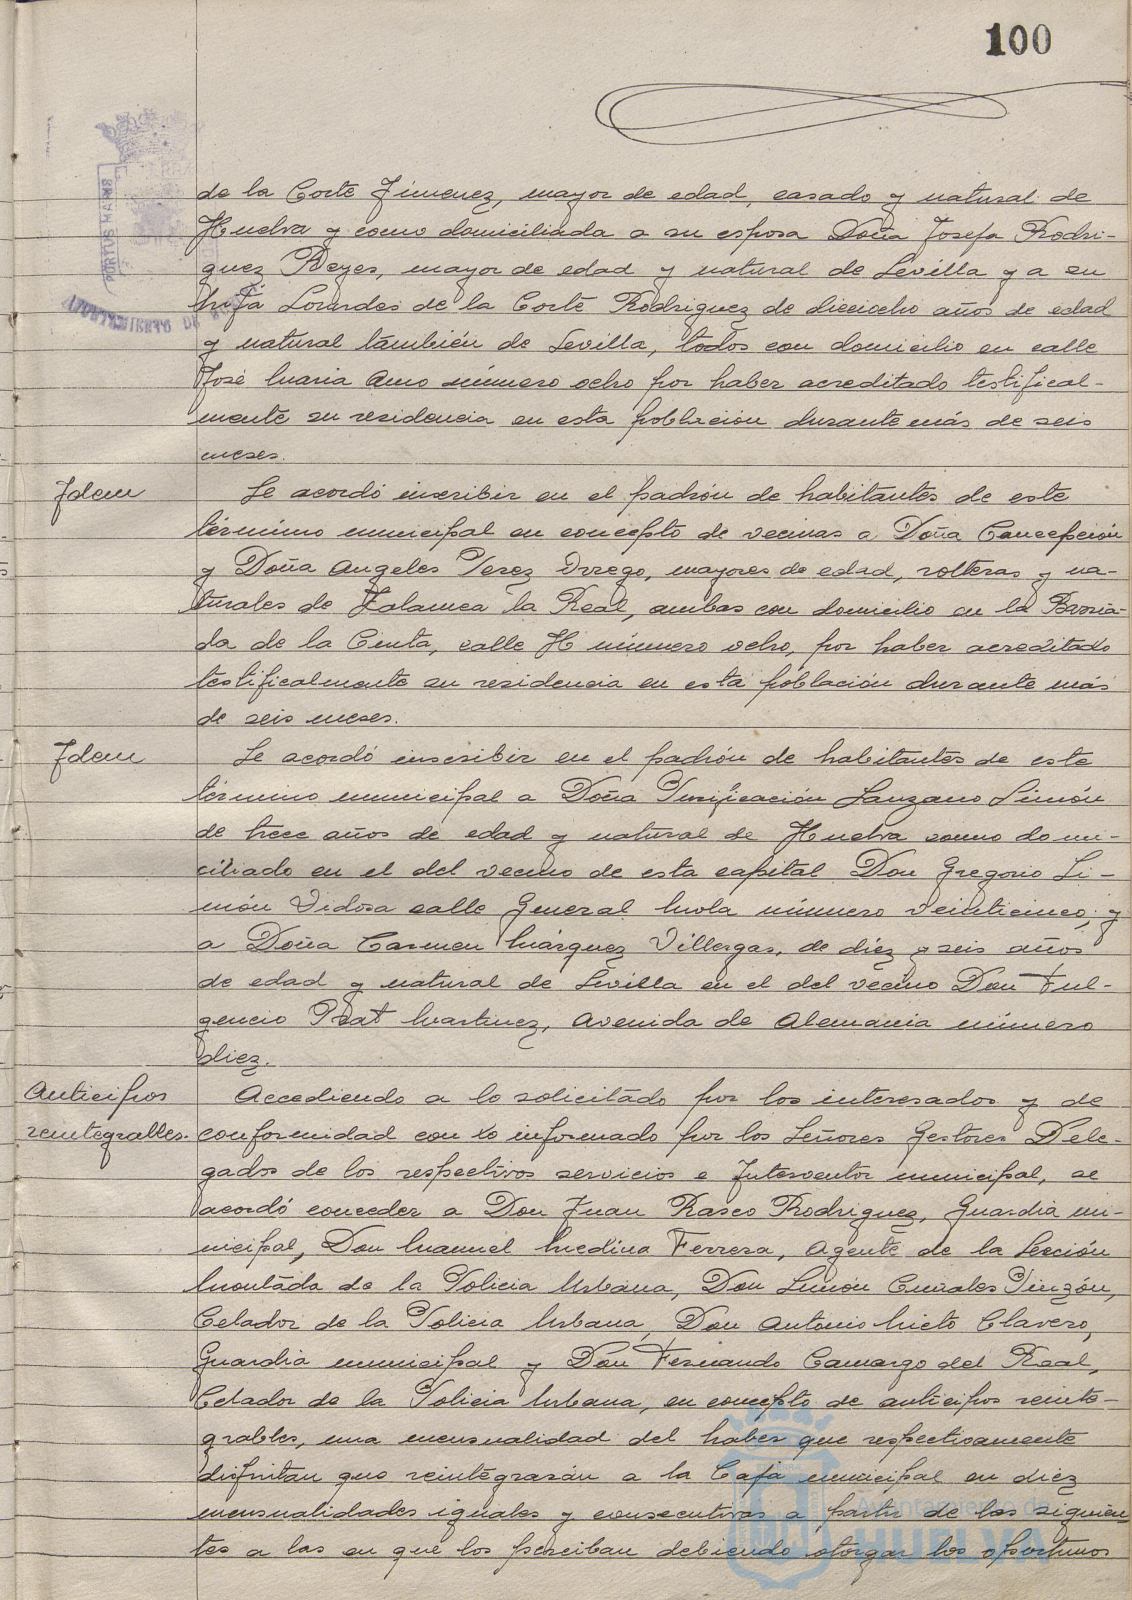 100
de la Corte Jimenez, mayor de edad, casado y natural de
Huelva y como domiciliada a su esposa Doña Josefa Rodri-
guez Reyes, mayor de edad y natural de Sevilla y a su
hija Lourdes de la Corte Rodriguez de dieciocho años de edad
y natural también de Sevilla, todos con domicilio en calle
José Maria Amo número ocho por haber acreditado testifical-
mente su residencia en esta población durante más de seis
meses.
Idem
Se acordó inscribir en el padrón de habitantes de este
término municipal en concepto de vecinas a Doña Concepción
y Doña Angeles Perez Orrego, mayores de edad, solteras y na-
turales de Zalamea la Real, ambas con domicilio en la Barria-
da de la Cinta, calle H número ocho, por haber acreditado
testificalmente su residencia en esta población durante más
de seis meses.
Idem
Se acordó inscribir en el padrón de habitantes de este
término municipal a Doña Purificación Lanzano Simón
de trece años de edad y natural de Huelva como domi-
ciliado en el del vecino de esta capital Don Gregorio Si-
món Vidosa calle General Mola número veinticinco; y
a Doña Carmen Márquez Villergas, de diez y seis años
de edad y natural de Sevilla en el del vecino Don Ful-
gencio Prat Martinez, Avenida de Alemania número
diez.
Anticipos
reintegrables.
Accediendo a lo solicitado por los interesados y de
conformidad con lo informado por los Señores Gestores Dele-
gados de los respectivos servicios e Interventor municipal, se
acordó conceder a Don Juan Rasco Rodriguez, Guardia mu-
nicipal, Don Manuel Medina Ferrera, Agente de la Sección
Montada de la Policia Urbana, Don Simón Pinzón,
Celador de la Policia Urbana, Don Antonio Nieto Clavero,
Guardia municipal y Don Fernando Camargo del Real,
Celador de la Policia Urbana, en concepto de anticipos reinte-
grables, una mensualidad del haber que respectivamente
disfrutan que reintegrarán a la Caja municipal en diez
mensualidades iguales y consecutivas a partir de las siguien-
tes a las en que los perciban debiendo otorgar los oportunos
PORTUS MARIS
AYUNTAMIENTO DE
Ayuntamiento de
HUELVA